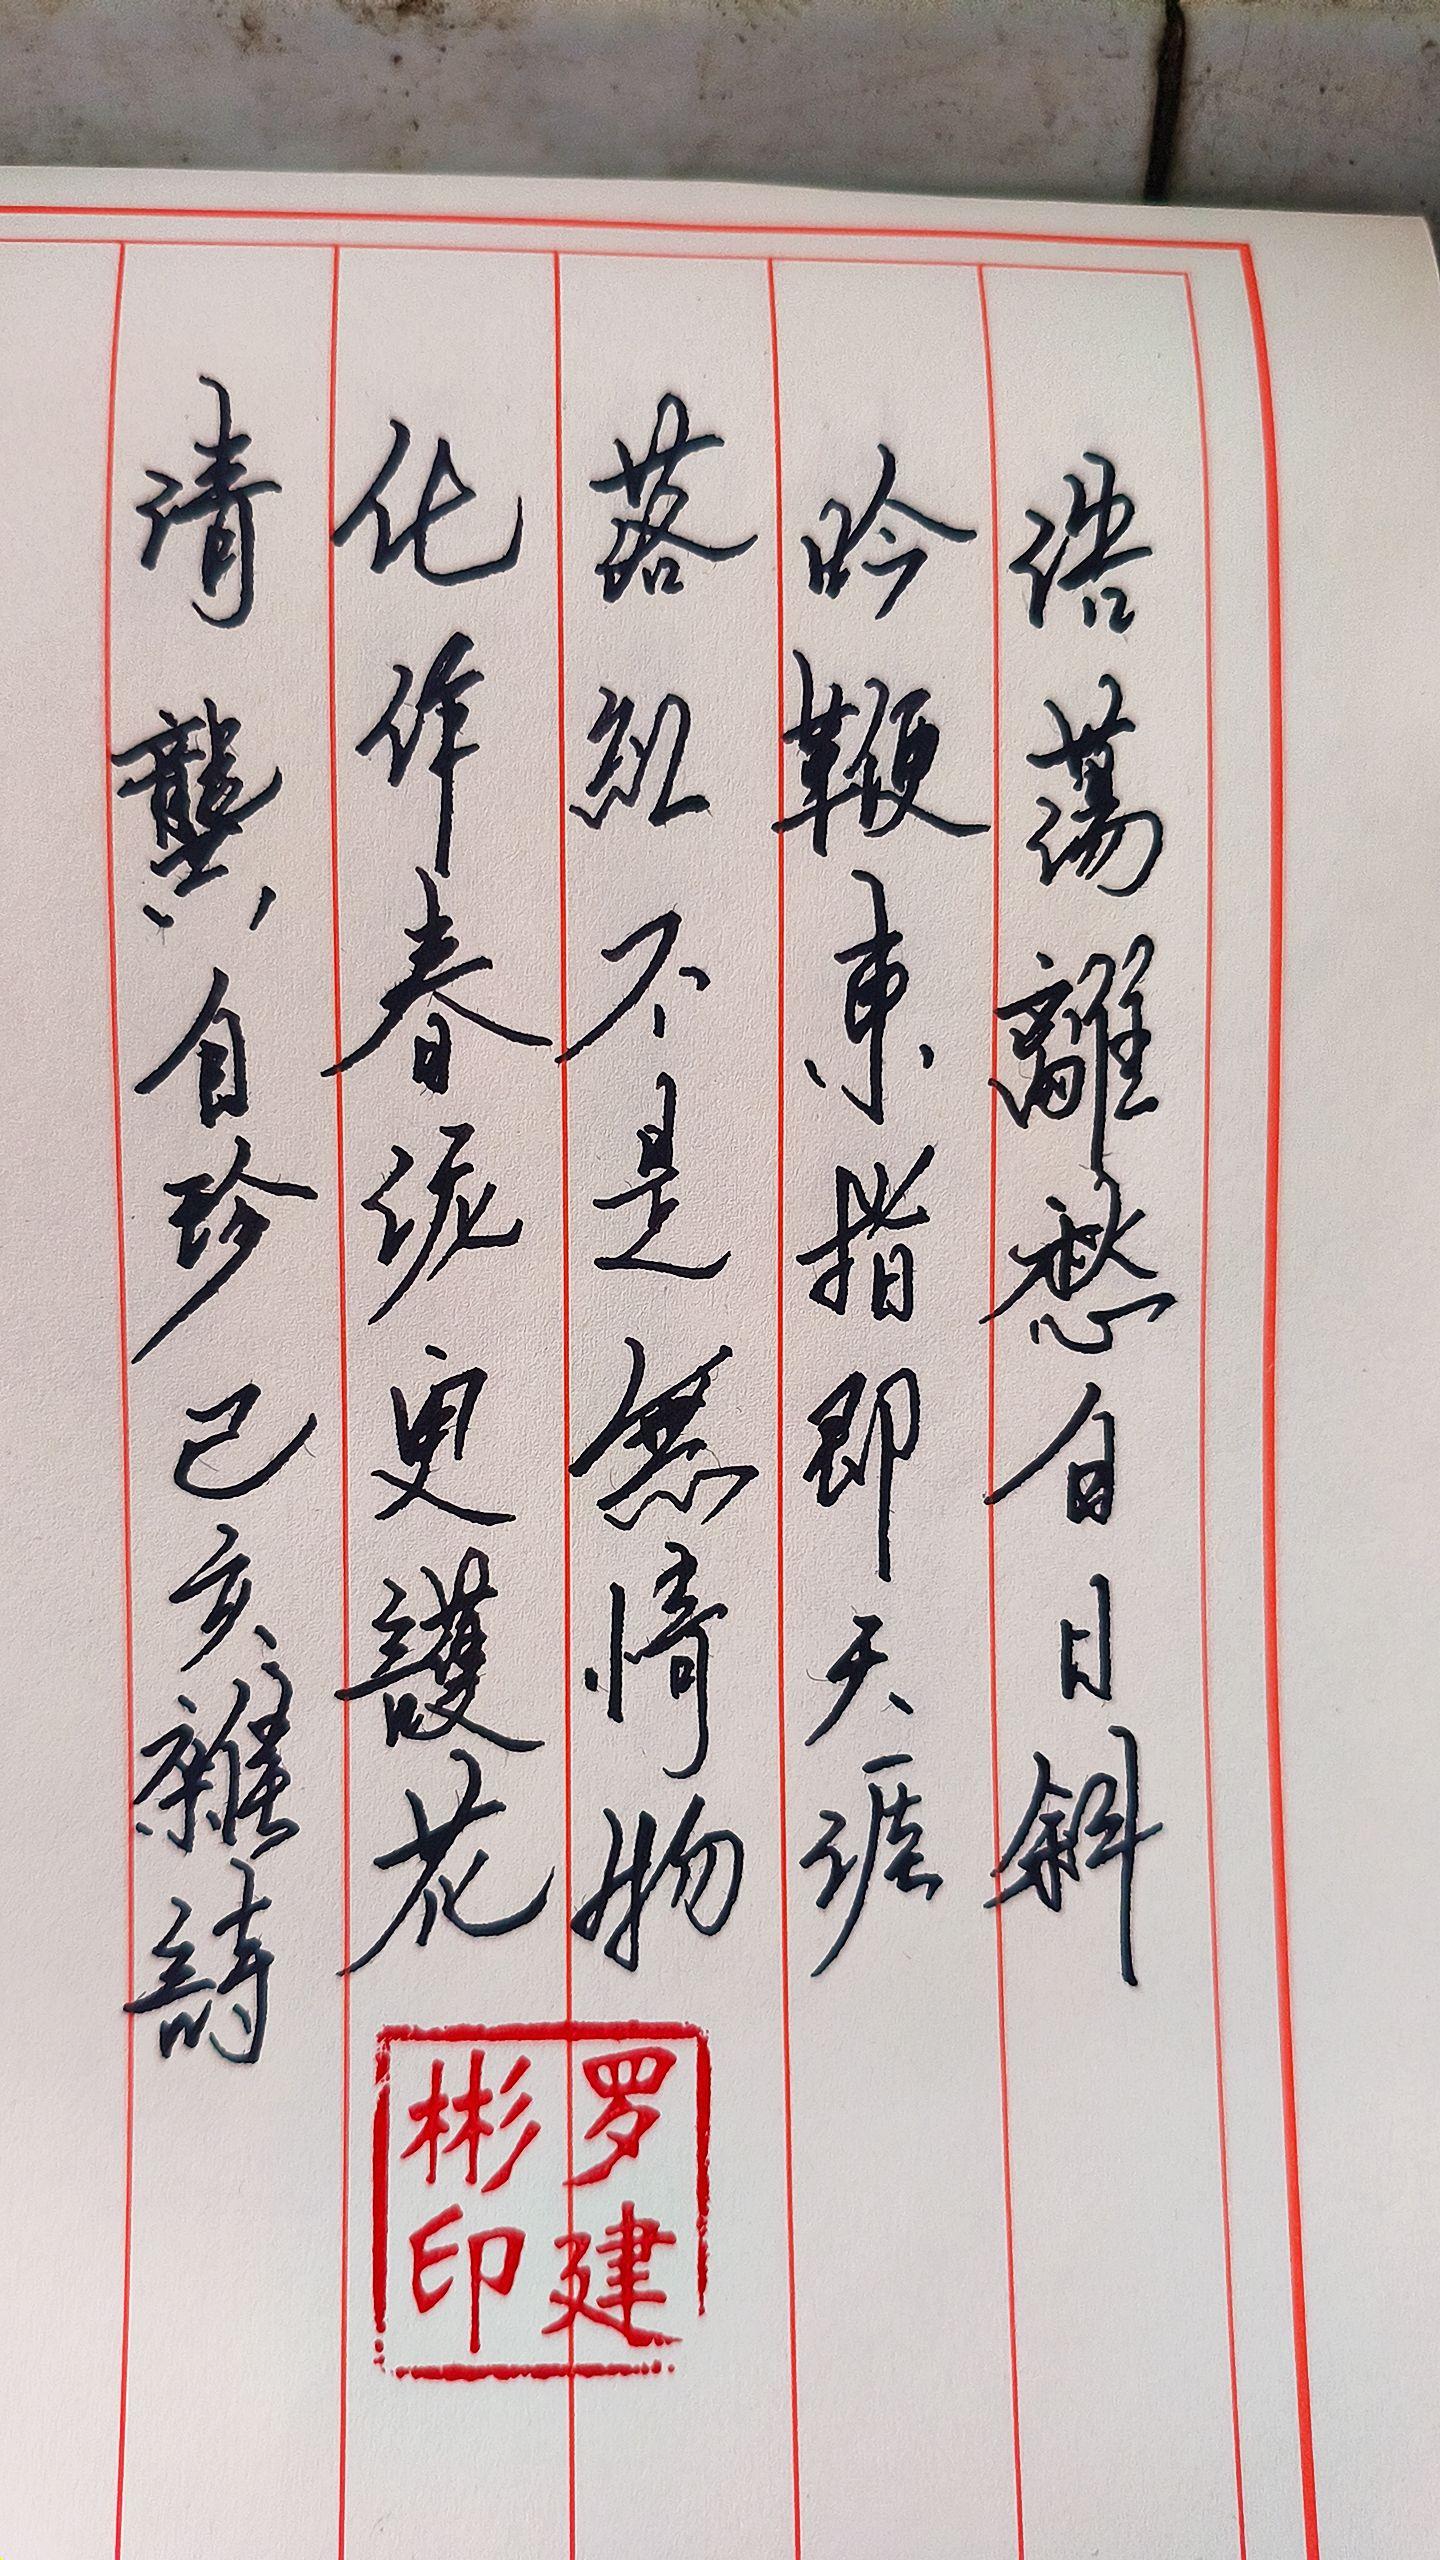 浩蕩離愁白日斜
吟鞭東指即天涯
落紅不是無情物
化作春泥更護花
清龔自珍己亥雜詩
罗建彬印